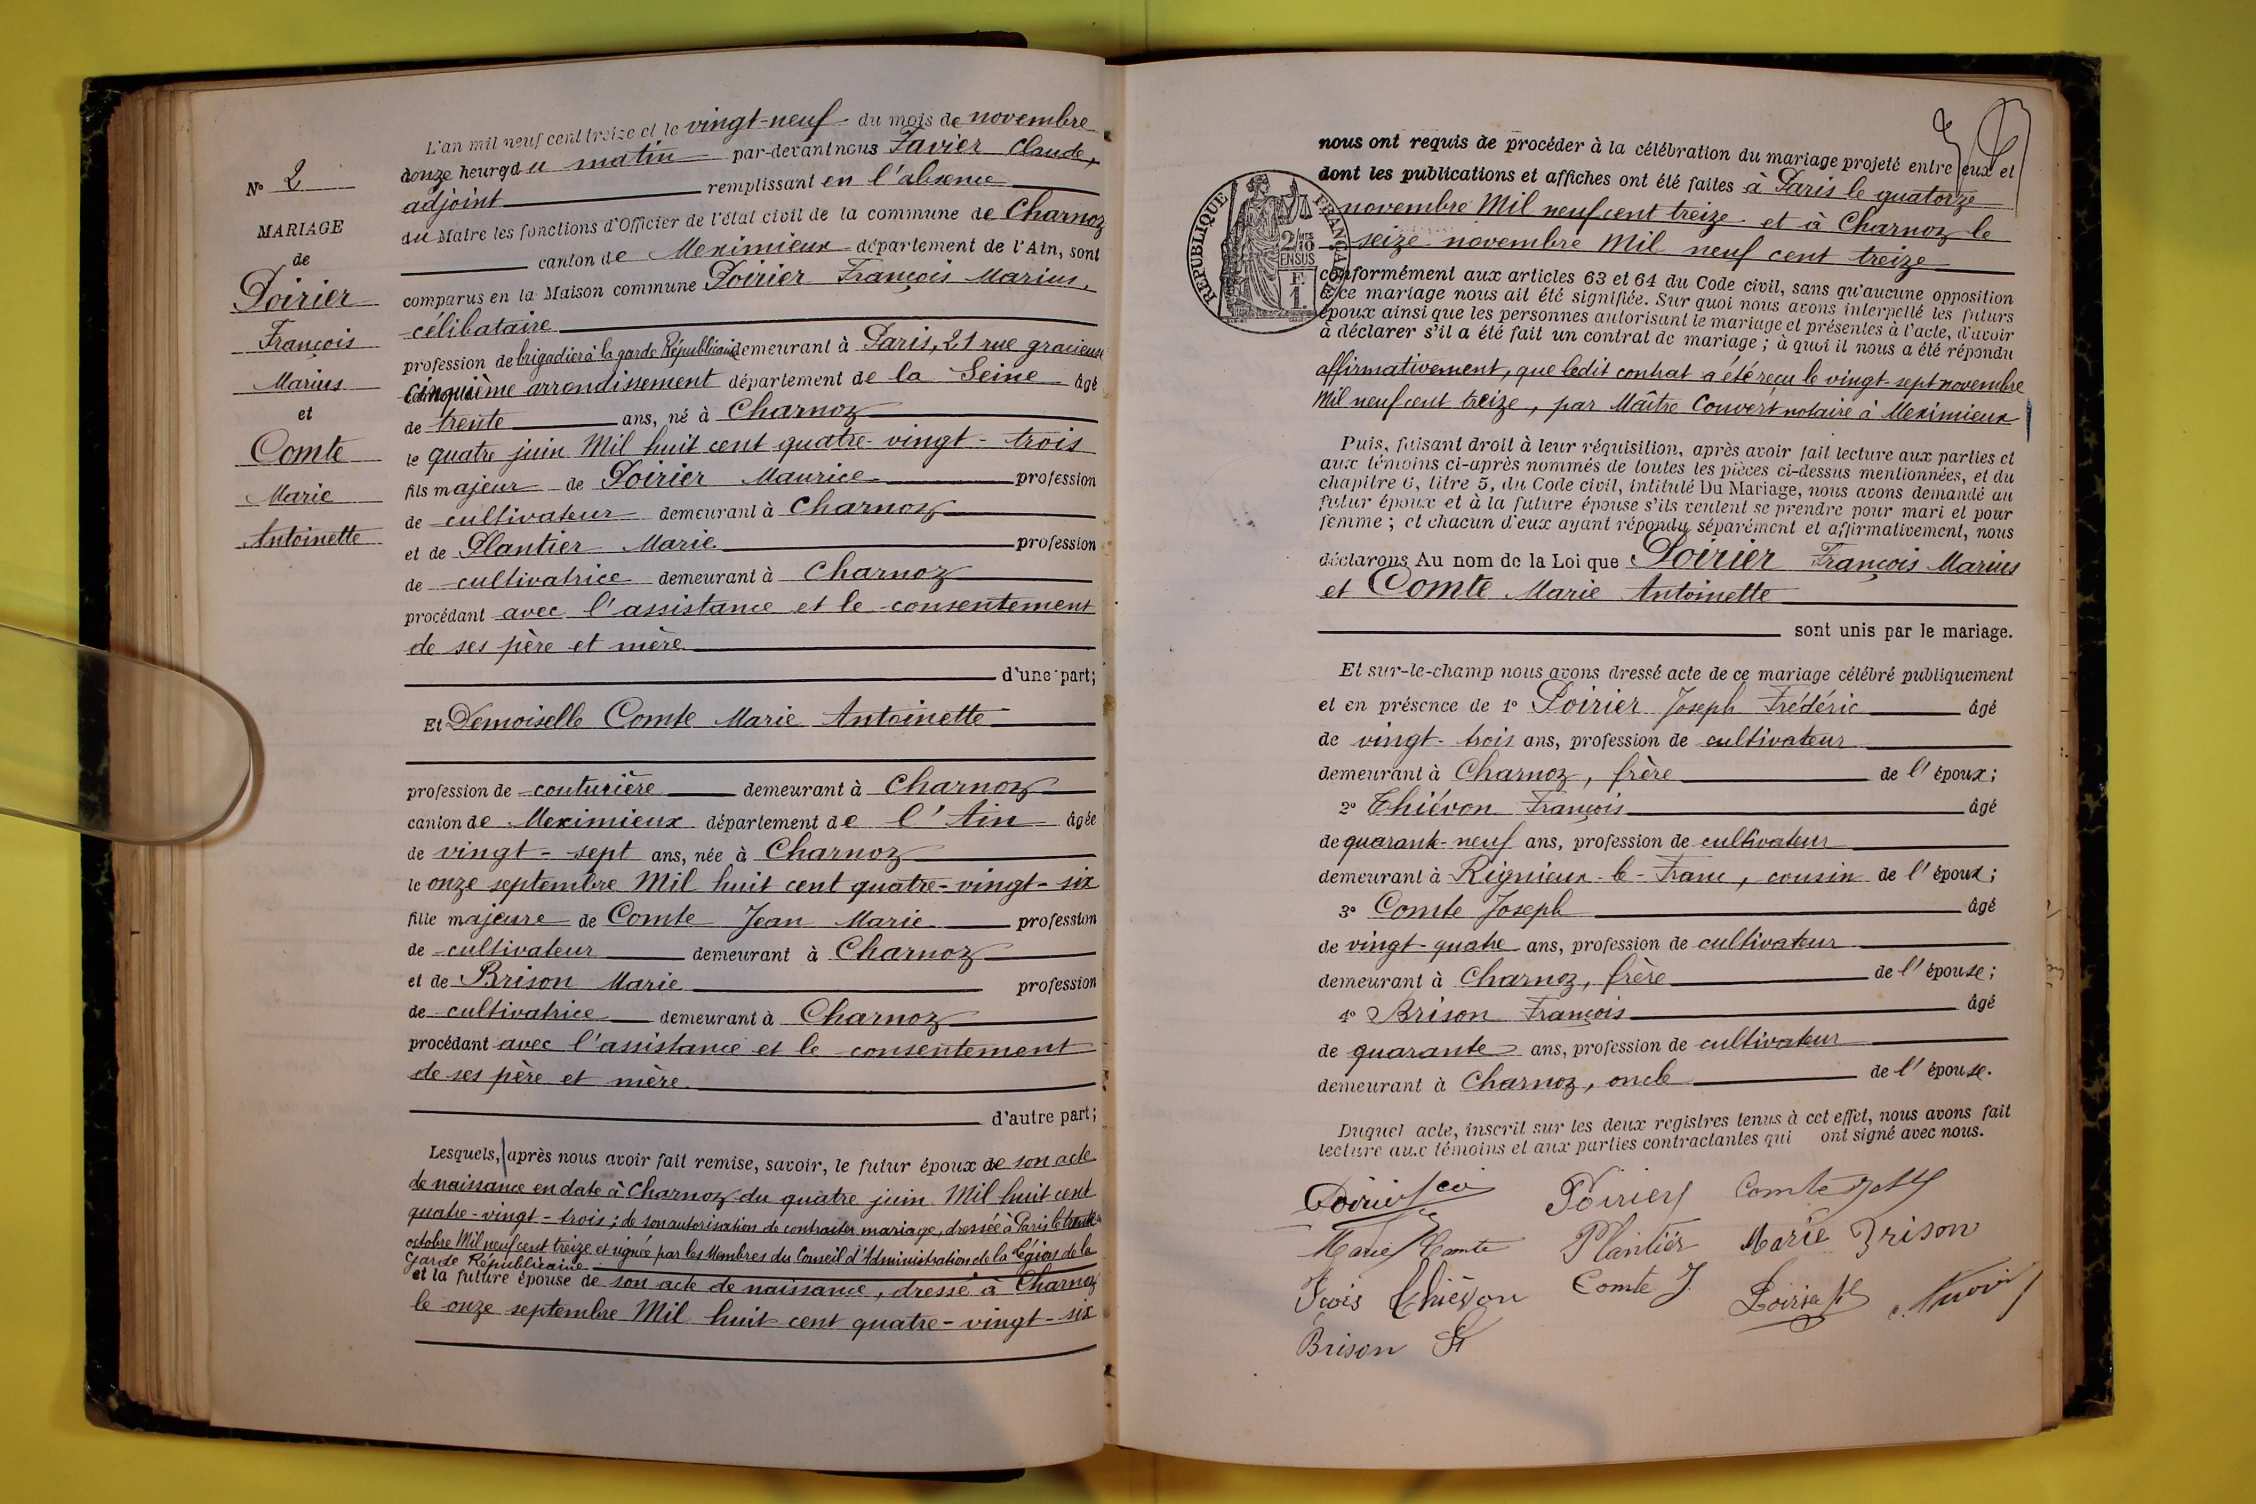 N° 2
MARIAGE
de
Poirier
François
Marius
et
Comte
Marie
Antoinette
L'an mil neuf cent treize et le vingt-neuf du mois de novembre
onze heures du matin par-devant nous Favier Claude,
adjoint remplissant en l'absence
du Maire les fonctions d'Officier de l'état civil de la commune de Charnoz
canton de Meximieux département de l'Ain, sont
comparus en la Maison commune Poirier François Marius,
célibataire
profession de brigadier à la garde Républicaine demeurant à Paris, 21 rue gracieuse
cinquième arrondissement département de la Seine âgé
de trente ans, né à Charnoz
le quatre juin Mil huit cent quatre-vingt-trois
fils majeur de Poirier Maurice profession
de cultivateur demeurant à Charnoz
et de Plantier Marie profession
de cultivatrice demeurant à Charnoz
procédant avec l'assistance et le consentement
de ses père et mère
d'une part;
Et Demoiselle Comte Marie Antoinette
profession de couturière demeurant à Charnoz
canton de Meximieux département de l'Ain âgée
de vingt-sept ans, née à Charnoz
le onze septembre Mil huit cent quatre-vingt-six
fille majeure de Comte Jean Marie profession
de cultivateur demeurant à Charnoz
et de Brison Marie profession
de cultivatrice demeurant à Charnoz
procédant avec l'assistance et le consentement
de ses père et mère
d'autre part;
Lesquels, après nous avoir fait remise, savoir, le futur époux de son acte
de naissance en date à Charnoz du quatre juin Mil huit cent
quatre-vingt-trois; de son autorisation de contracter mariage, dressée à Paris le trente
octobre Mil neuf cent treize et signée par les Membres du Conseil d'Administration de la Légion de la
Garde Républicaine
et la future épouse de son acte de naissance, dressé à Charnoz
le onze septembre Mil huit cent quatre-vingt-six
RÉPUBLIQUE FRANÇAISE
2/10 MES
EN SUS
F.
1.
nous ont requis de procéder à la célébration du mariage projeté entre eux et
dont les publications et affiches ont été faites à Paris le quatorze
novembre Mil neuf cent treize et à Charnoz le
seize novembre Mil neuf cent treize
conformément aux articles 63 et 64 du Code civil, sans qu'aucune opposition
à ce mariage nous ait été signifiée. Sur quoi nous avons interpellé les futurs
époux ainsi que les personnes autorisant le mariage et présentes à l'acte, d'avoir
à déclarer s'il a été fait un contrat de mariage; à quoi il nous a été répondu
affirmativement, que ledit contrat a été reçu le vingt-sept novembre
Mil neuf cent treize, par Maître Convert notaire à Meximieux
Puis, faisant droit à leur réquisition, après avoir fait lecture aux parties et
aux témoins ci-après nommés de toutes les pièces ci-dessus mentionnées, et du
chapitre 6, titre 5, du Code civil, intitulé Du Mariage, nous avons demandé au
futur époux et à la future épouse s'ils veulent se prendre pour mari et pour
femme; et chacun d'eux ayant répondu séparément et affirmativement, nous
déclarons Au nom de la Loi que Poirier François Marius
et Comte Marie Antoinette
sont unis par le mariage.
Et sur-le-champ nous avons dressé acte de ce mariage célébré publiquement
et en présence de 1° Poirier Joseph Frédéric âgé
de vingt-trois ans, profession de cultivateur
demeurant à Charnoz, frère de l'époux;
2° Thiévon François âgé
de quarante-neuf ans, profession de cultivateur
demeurant à Rignieux-le-Franc, cousin de l'époux;
3° Comte Joseph âgé
de vingt-quatre ans, profession de cultivateur
demeurant à Charnoz, frère de l'épouse;
4° Brison François âgé
de quarante ans, profession de cultivateur
demeurant à Charnoz, oncle de l'épouse.
Duquel acte, inscrit sur les deux registres tenus à cet effet, nous avons fait
lecture aux témoins et aux parties contractantes qui ont signé avec nous.
Poirier Poirier Comte
Marie Comte Plantier Marie Brison
Thiévon Comte J. Poirier
Brison